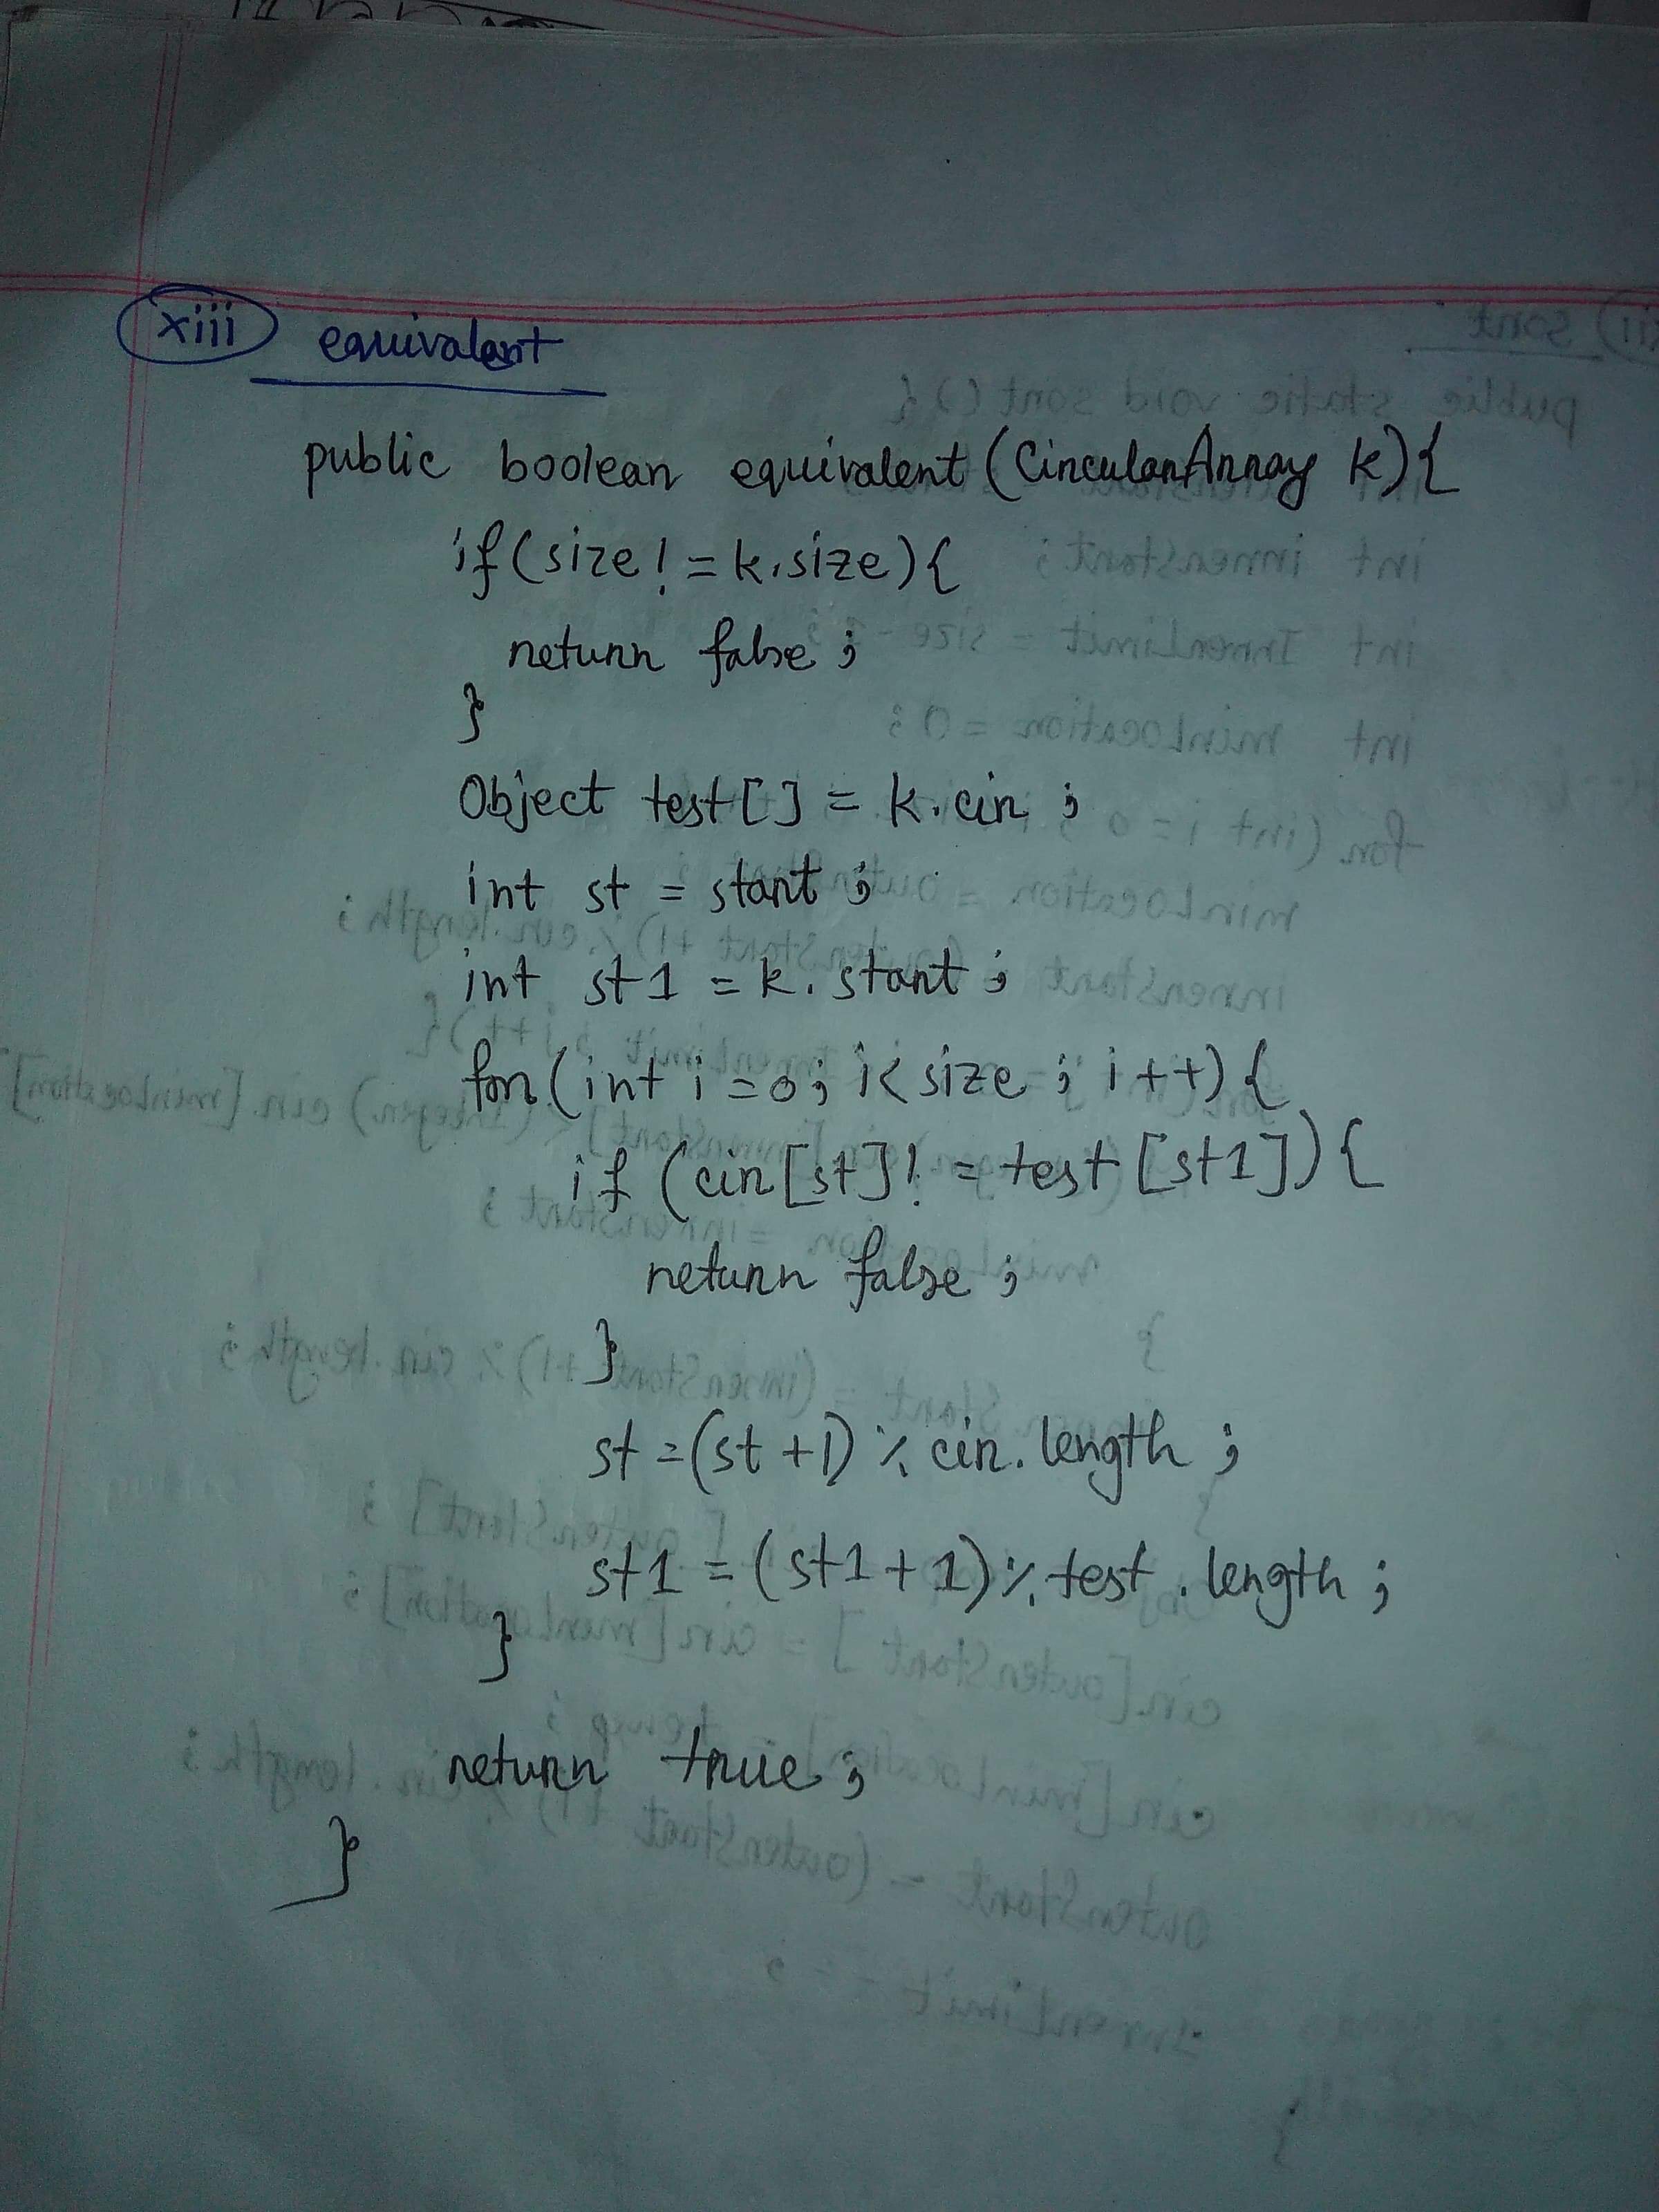 xiii equivalent
public boolean equivalent (CircularArray k){
if (size != k.size){
return false ;
}
Object test[] = k.cir ;
int st = start ;
int st1 = k.start ;
for (int i = 0; i < size ; i++){
if (cir[st] != test[st1]){
return false ;
}
st = (st + 1) % cir.length ;
st1 = (st1 + 1) % test.length ;
}
return true ;
}